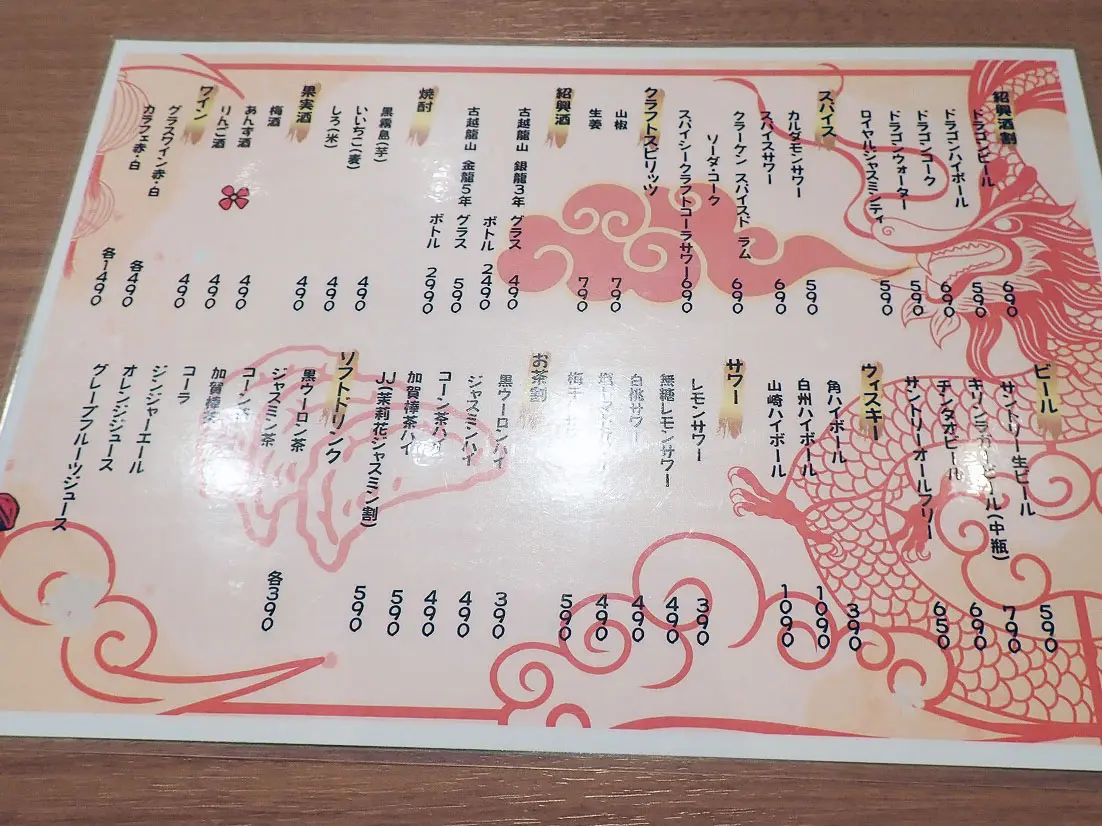 紹興酒割
ドラゴンビール 690
ドラゴンハイボール 590
ドラゴンコーク 690
ドラゴンウォーター 590
ロイヤルジャスミンティ 590
スパイス
カルダモンサワー 590
スパイスサワー 690
クラーケン スパイスド ラム 690
ソーダ・コーク
スパイシークラフトコーラサワー 690
クラフトスピリッツ
山椒 790
生姜 790
紹興酒
古越龍山 銀龍3年 グラス 490
ボトル 2490
古越龍山 金龍5年 グラス 590
ボトル 2990
焼酎
黒霧島(芋) 490
いいちこ(麦) 490
しろ(米) 490
果実酒
梅酒 490
あんず酒 490
りんご酒 490
ワイン
グラスワイン赤・白 各490
カラフェ赤・白 各1490
ビール
サントリー生ビール 590
キリンラガービール(中瓶) 790
チンタオビール 690
サントリーオールフリー 650
ウィスキー
角ハイボール 390
白州ハイボール 1090
山崎ハイボール 1090
サワー
レモンサワー 390
無糖レモンサワー 490
白桃サワー 490
490
590
お茶割
黒ウーロンハイ 390
ジャスミンハイ 490
コーン茶ハイ 490
加賀棒茶ハイ 590
JJ(茉莉花ジャスミン割) 590
ソフトドリンク
黒ウーロン茶
ジャスミン茶 各390
コーン茶
加賀棒茶
コーラ
ジンジャーエール
オレンジジュース
グレープフルーツジュース